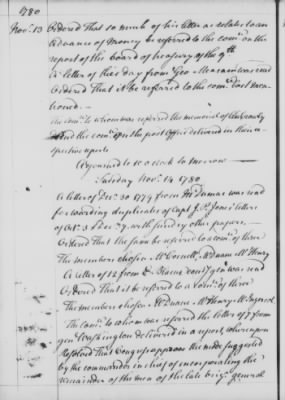 1780
Nov. 13 Ordered That so much of his letter as relates to an
Advance of money be referred to the comee on the
report of the board of treasury of the 9th
A letter of this day from Geo Measam was read
Ordered That it be referred to the comee last men
tioned. —
The comee to whom was referred the memorial of
And the comee on the post Office delivered in their re
spective reports
Adjourned to 10 o Clock to morrow —
Tuesday Nov. 14 1780
A letter of Dec. 30 1779 from Mr Dumas was read
forwarding duplicates of Capt J. P. Jones letters
of Oct. 3 & Dec. 7. with sundry other papers —
Ordered That the same be referred to a comee of three
The members chosen Mr Cornell, Mr Duane Mr Henry
A letter of 12 from gen was read
Ordered That it be referred to a Comee of three
The members chosen Mr Duane Mr Henry Mr
The Comee to whom was referred the letter of 7 from
gen Washington delivered in a report, whereupon
Resolved That Congress approve the mode suggested
by the commander in chief of incorporating the
remainder of the men of the late brigr general